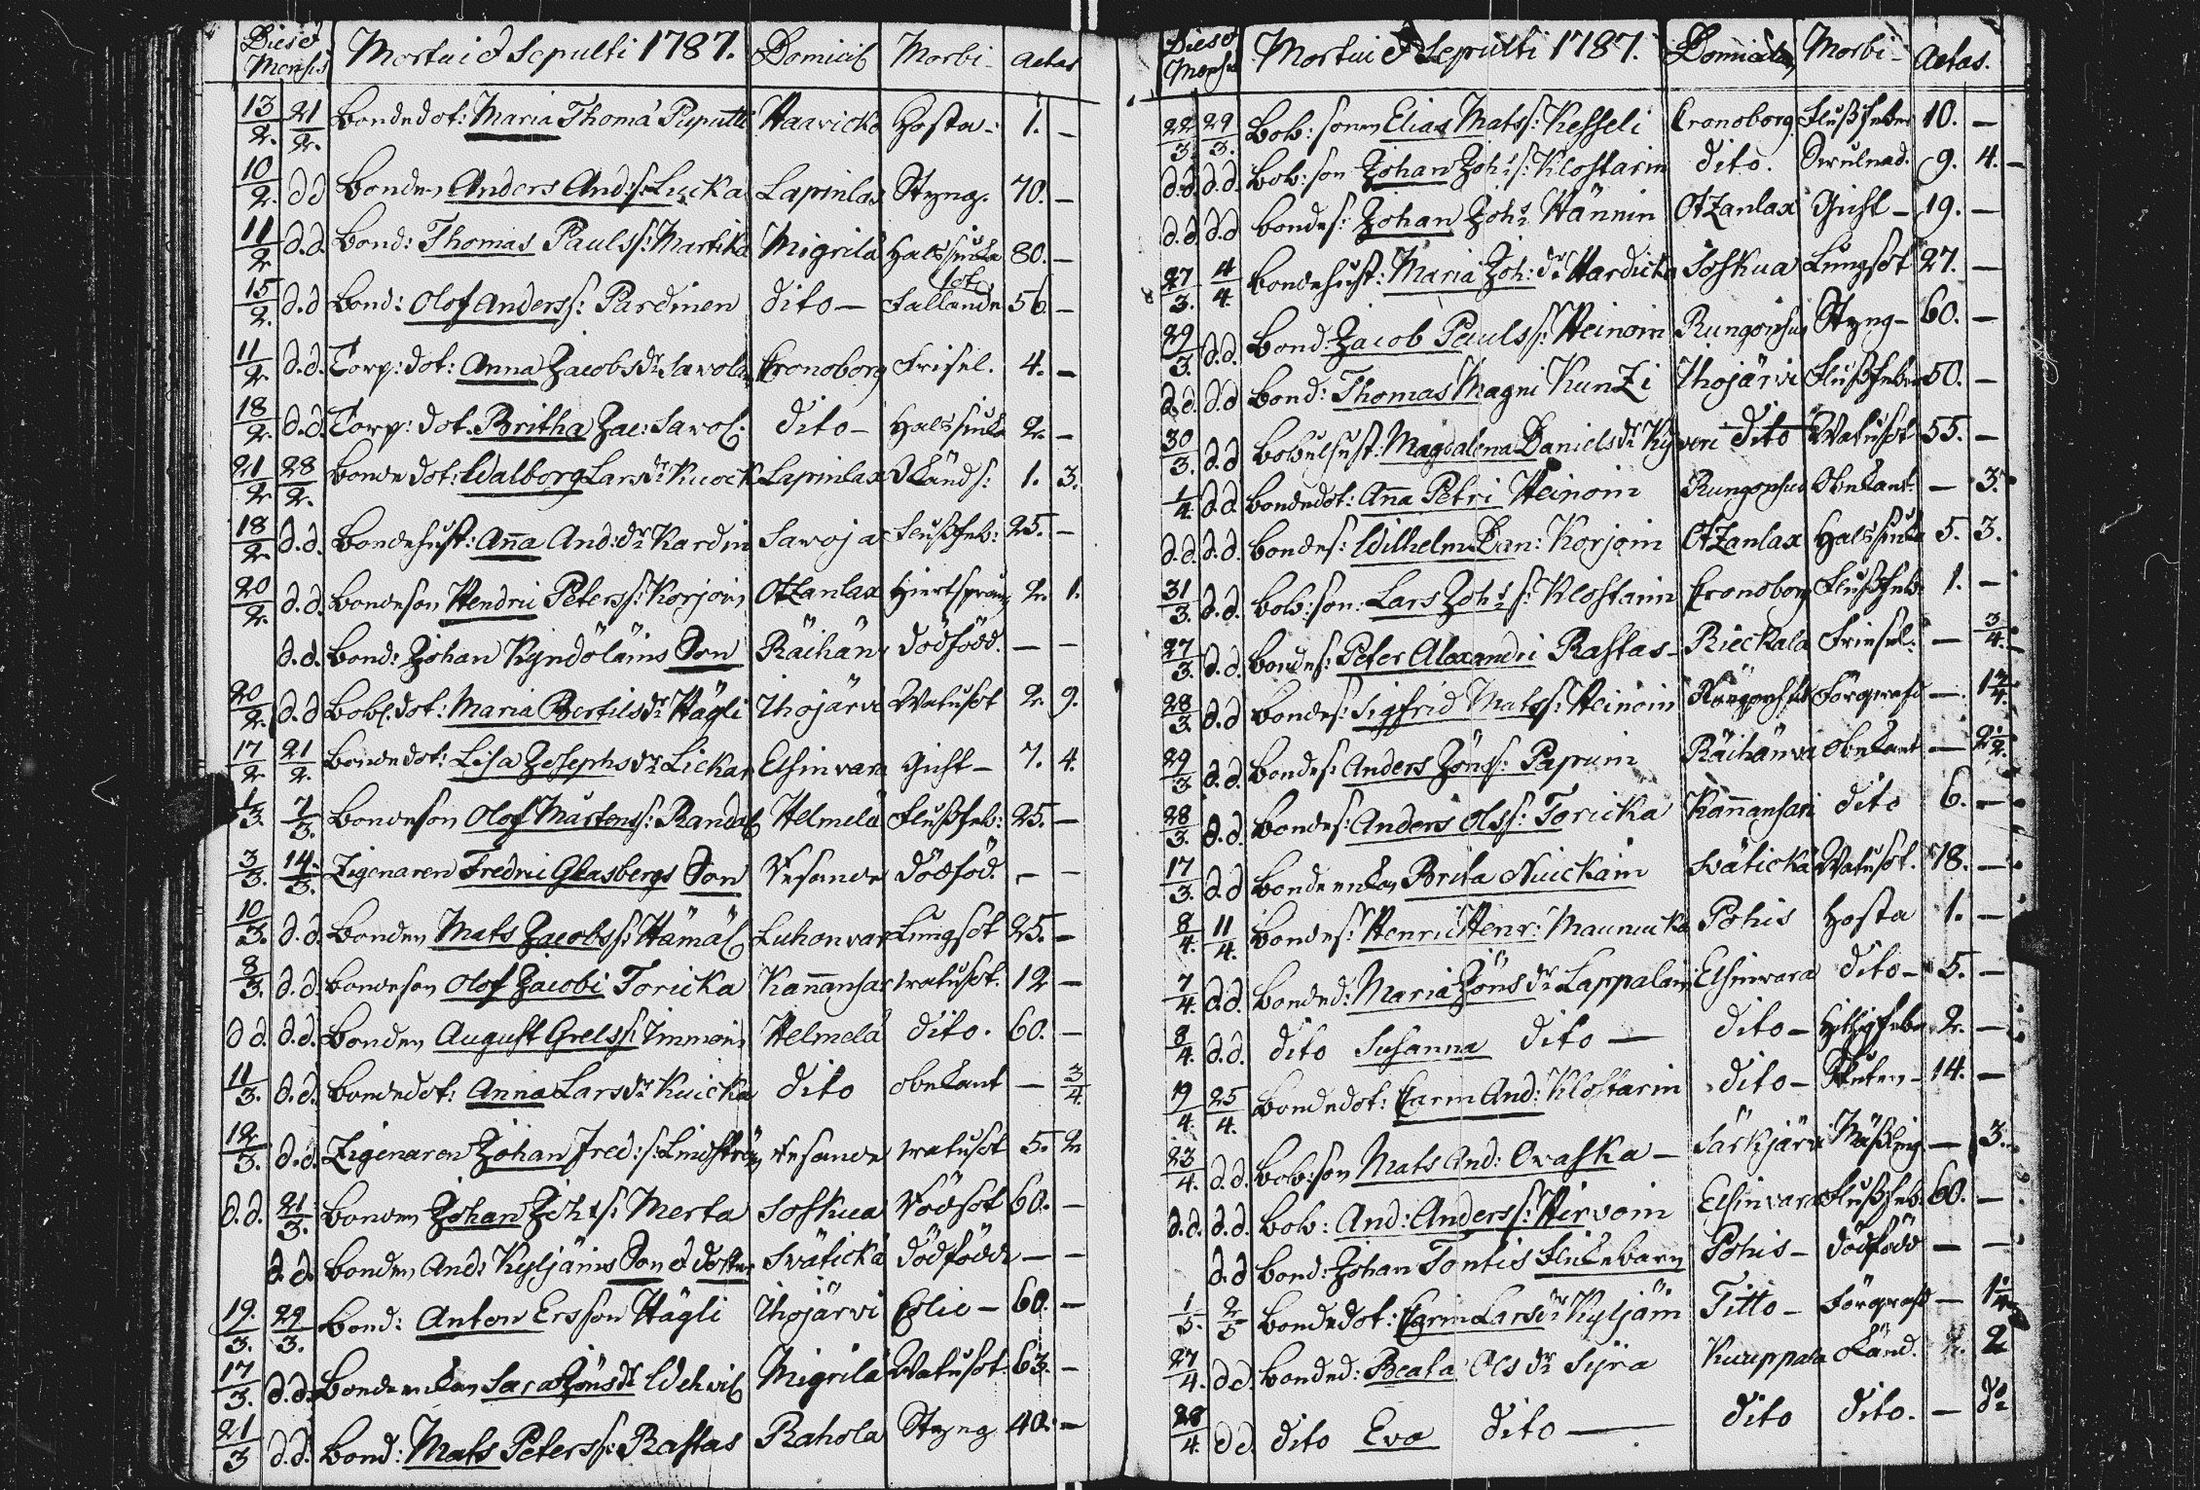 Dies et Mensis Mortui & Sepulti 1787. Domicil Morbi Aetas
13/2. 21/2. bondedot: Maria Thoma Puputti Haavicko Hosta 1. —
10/2. d.d bonden Anders And:s: Lucka Lapinlax Styng. 70. —
11/2 d.d. bond: Thomas Pauls s: Martika Migrilä Halssiuka 80. —
15/2. d.d bond: Olof Anders s: Pardinen dito — Fallande sot 56 —
11/2 d.d. Torp: dot: Anna Jacobs dr Savola Cronoborg Frisel. 4. —
18/2. d.d. Torp: dot. Britha Jac: Savol: dito — Halssiuka 2. —
21/2 28/2. bondedot: Walborg Lars dr Kuock Lapinlax Okänd s: 1. 3.
18/2 d.d. bondehust: Anna And: dr Kardin Savoja Flussfeb: 25. —
20/2. d.d. bondeson Hendric Peters s: Korjoin Otzanlax Hiertsprång 2. 1.
d.d. bond: Johan Kyndöläins Son Räihän dödfödd. — —
20/2. d.d bobl. dot: Maria Bertils dr Hägli Ihojärvi Watusot 2. 9.
17/2 21/2. bondedot: Lisa Josephs dr Lickan Elsinvara Gicht — 7. 4.
1/3. 7/3. bondeson Olof Mårtens s: Randal Helmelä Flussfeb: 25. —
3/3. 14/3. Zigenaren Fredric Glasbergs Son Vesande dödföd. — —
10/3. d.d. bonden Mats Jacobs s: Hämäl Luhonvar Lungsot 25. —
8/3. d.d. bondeson Olof Jacobi Toricka Kananhar watusot. 12 —
d d. d.d. bonden August Grels s: Immoin Helmelä dito. 60. —
11/3. d.d. bondedot: Anna Lars dr Kuicka dito obekant — 3/4.
12/3. d.d. Zigenaren Johan Fred: s: Lindström Vesande watusot 5. 2
d.d. 21/3. bonden Johan Joh: s: Merta Soskua Rödsot 60. —
d.d. bonden And: Kyljäins Son & dotter Svätickä dödfödde — —
19./3. 22/3. bond: Anton Ersson Hägli Ihojärvi Colic — 60. —
17/3. d.d. bondeenkan Sara Jöns dr Wehvil Migrilä Watusot 63. —
21/3 d.d. bond: Mats Peters s: Rastas Rahola Styng 40. —
Dies et Mensis Mortui & Sepulti 1787. Domicilia Morbi Aetas.
22/3 29/3. bob: sonen Elias Mats s: Kesseli Cronoborg Flussfeber 10. —
d.d. d.d. bob: son Johan Joh: s: Klostarin dito. 9. 4. —
d.d. d.d bondes: Johan Joh: Hännin Otzanlax Gicht — 19. —
27/3. 4/4. bondehust: Maria Joh: dr Hardicka Soskua Lungsot 27. —
29/3 d.d. bond: Jacob Pauls s: Heinoin Rungonhuj Styng — 60. —
d.d. d.d bond: Thomas Magni Kunzi Ihojärvi Flussfeber 50. —
30/3. d.d bobulhust: Magdalena Daniels dr Kyveri dito Watusot 55. —
1/4 d.d bondedot: Anna Petri Heinoin Rungonhuj Obekant — 3.
d.d. d.d. bondes: Wilhelm Dan: Korjoin Otzanlax Halssiuka 5. 3.
31/3 d.d. bob: son: Lars Joh: s: Klostarin Cronoborg Flussfeb: 1. —
27/3. d.d. bondes: Peter Alexandri Rastas — Rieckala Friesel: — 3/4.
28/3 d.d bondes: Sigfrid Mats s: Heinoin Rungonhuj Förqvafd —
29/3 d.d. bondes: Anders Jöns s: Papuin Räihänvr Obekant — 2 1/2.
28/3. d.d. bondes: Anders Ols s: Toricka Kananhari dito 6. —
17/3. d.d bondeenkan Brita Nuickain Svätickä Watusot. 78. —
8/4. 11/4. bondes: Henric Henr: Maunuckä Pohis Hosta 1. —
7/4. d.d. bonded: Maria Jöns dr Lappalain Elsinvara dito — 5. —
8/4. d.d. dito Susanna dito — dito — Hitzigfeber 2. —
19/4. 25/4. bondedot: Carin And: Klostarin dito — 14. —
23/4. d.d. bob: son Mats And: Ovaska — Särkjärvi Mässling — 3.
d.d. d.d. bob: And: Anders s: Hirvoin Elsinvara Flussfeb: 60. —
d.d bond: Johan Tontis Flickebarn Pohis — dödfödd — —
1/5. 2/5 bondedot: Carin Lars dr Kyljäin Titto — Förqvafd — 1 1/4
27/4. d d. bonded: Beata Ols dr Sijra Kuuppala Okänd. 2
28/4. d d. dito Eva dito — dito dito. — do